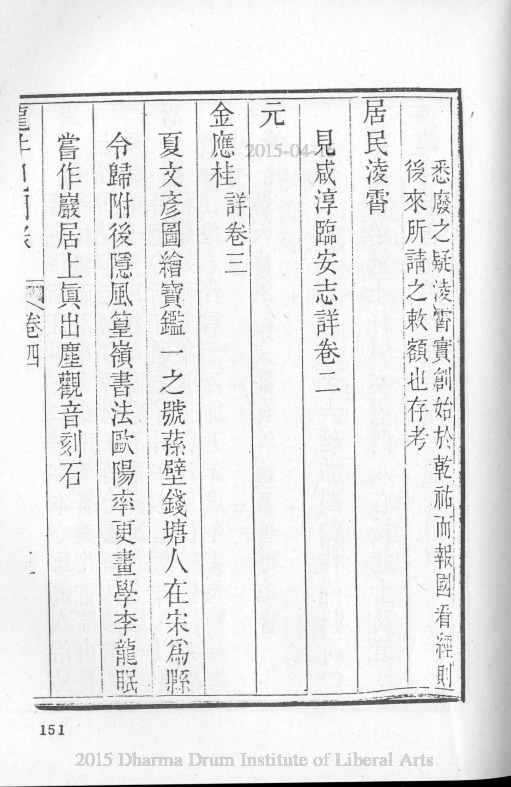 悉廢之疑淩霄實創始於乾祐而報國看經則
後來所請之敕額也存考
居民淩霄
見咸淳臨安志詳卷二
元
金應桂 詳卷三
夏文彥圖繪寶鑑一之號蓀壁錢塘人在宋爲縣
令歸附後隱風篁嶺書法歐陽率更畫學李龍眠
嘗作巖居上眞出塵觀音刻石
卷四
151
2015 Dharma Drum Institute of Liberal Arts